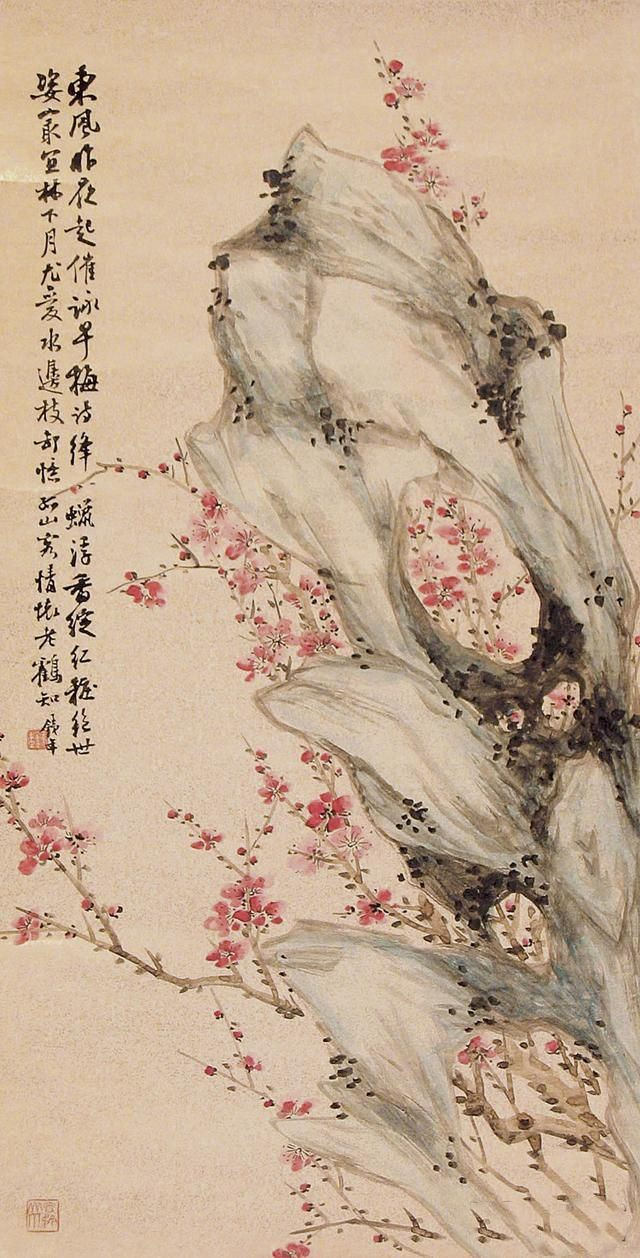 東風昨夜起催詠早梅詩絳蠟浮香綻紅糚絕世
姿最宜林下月尤愛水邊枝却憶孤山客情懷老鶴知 銕年